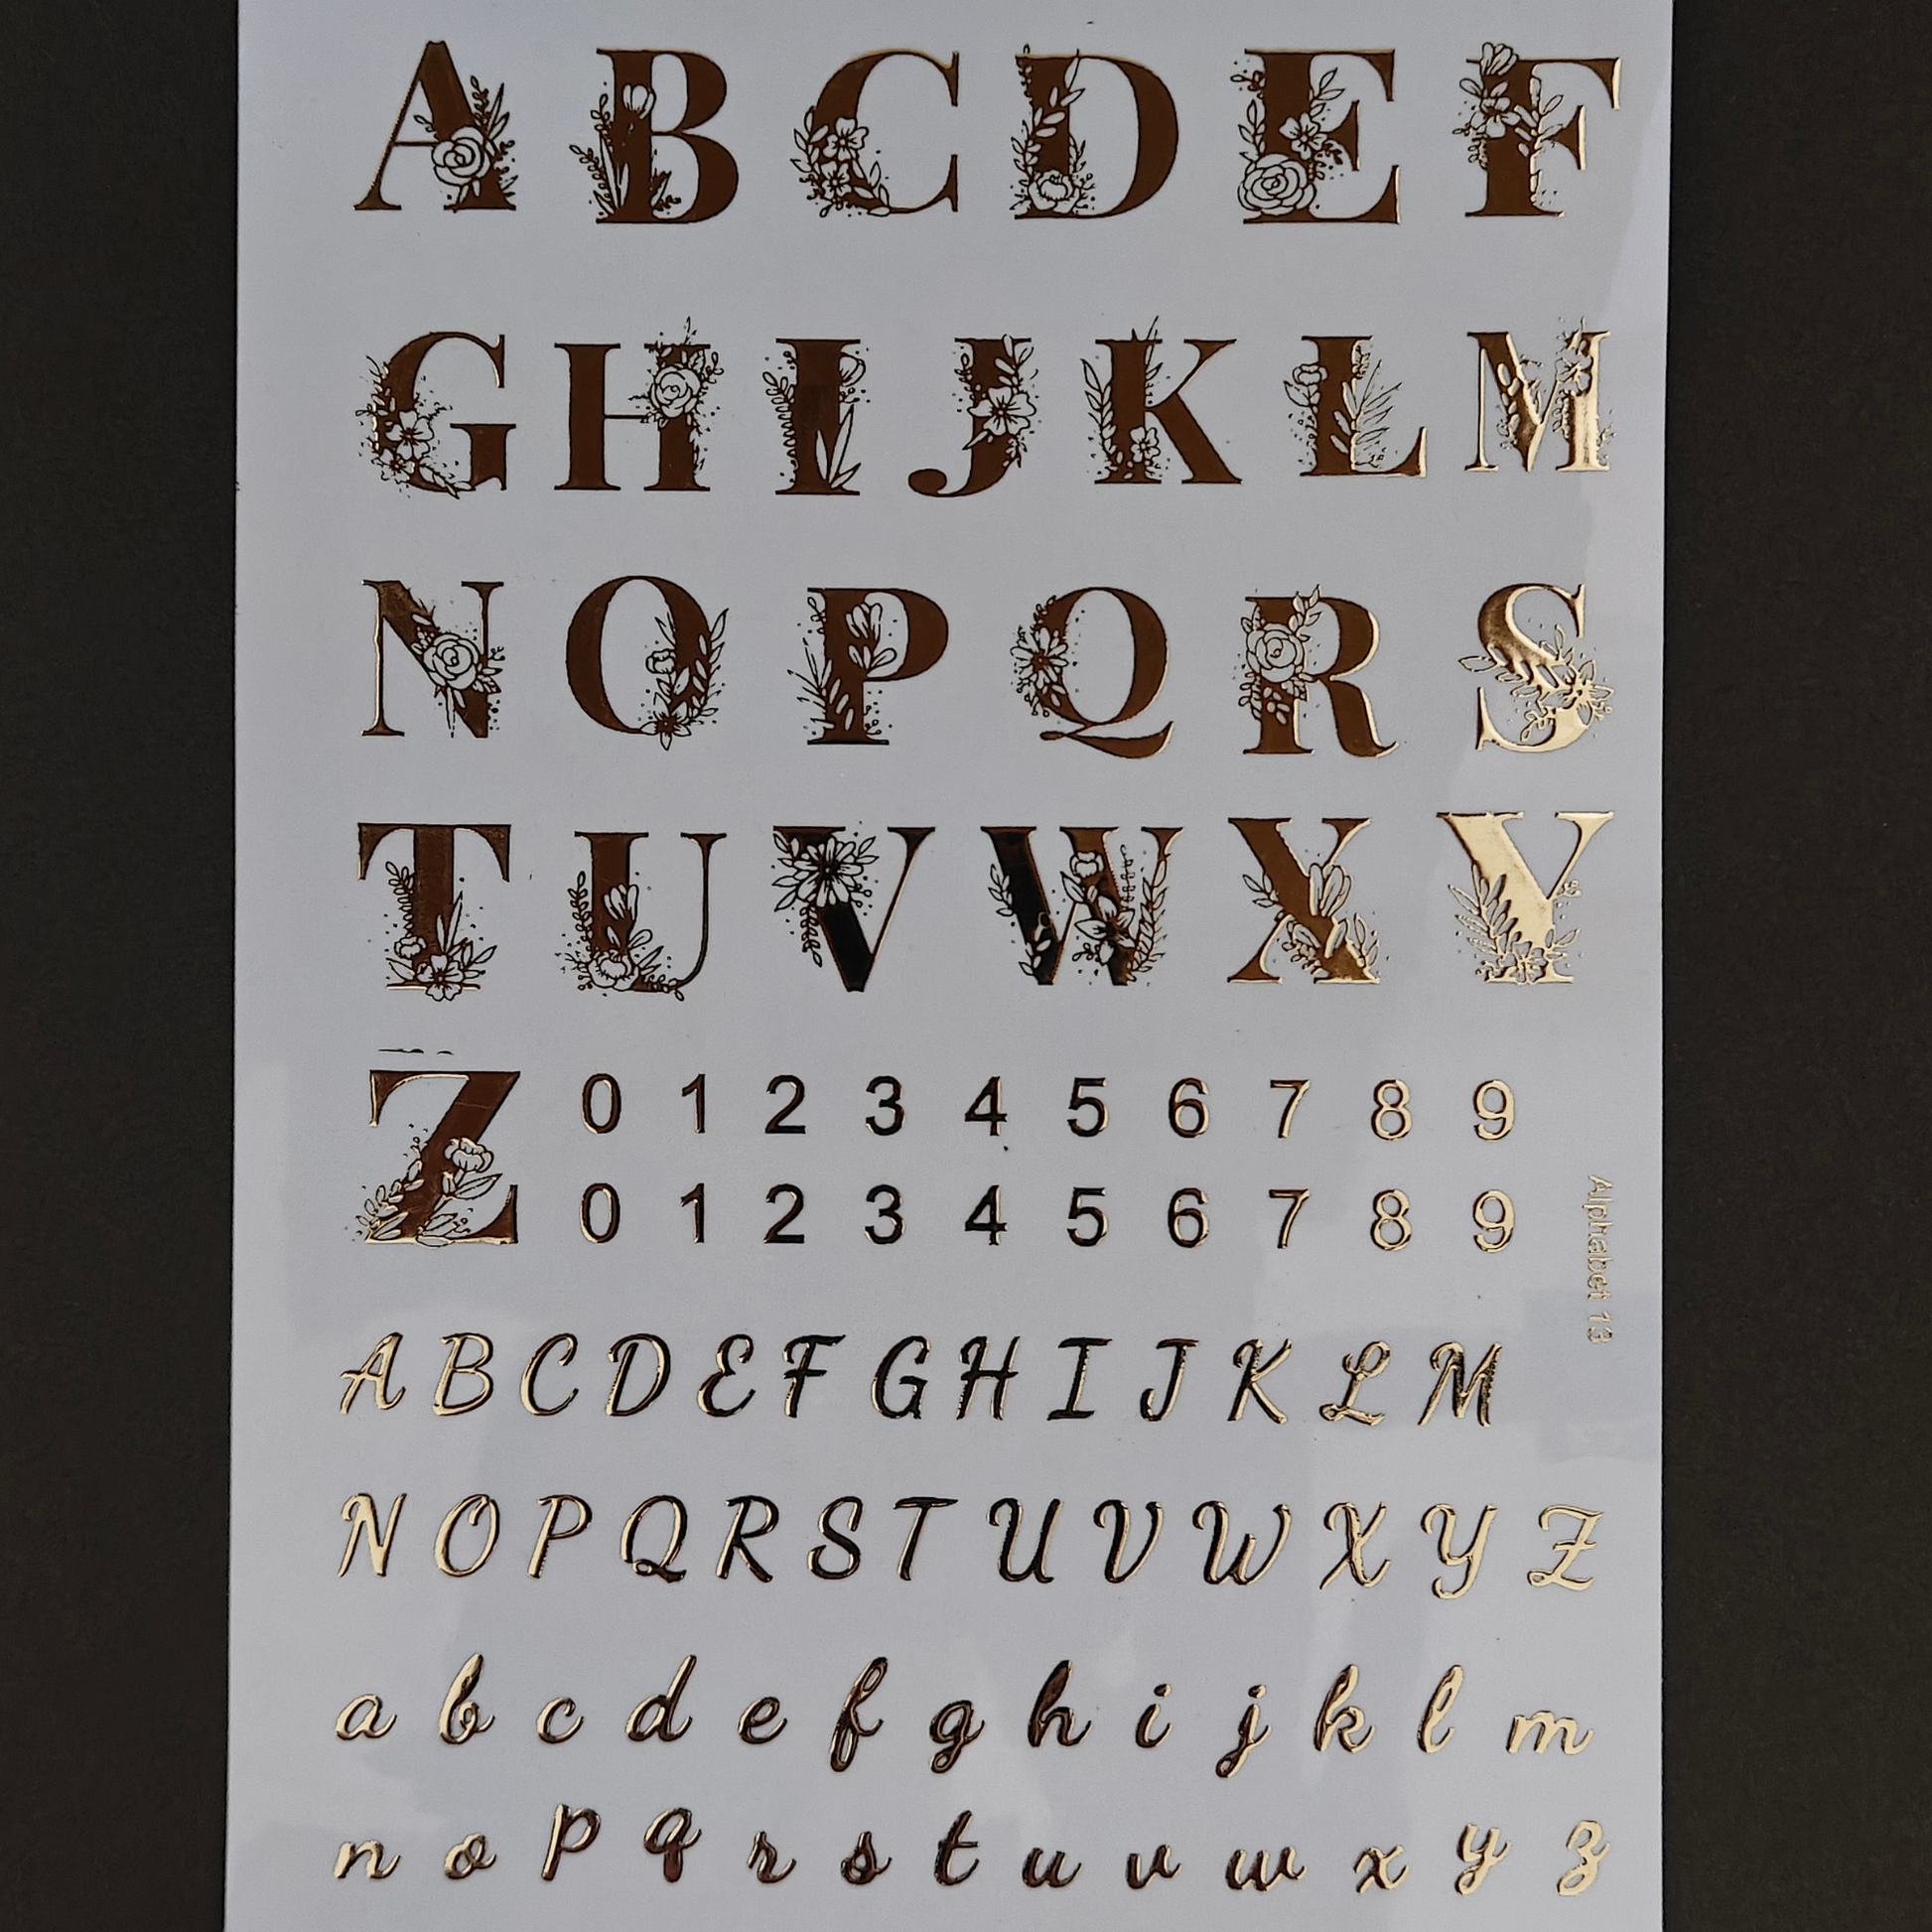 A B C D E F
G H I J K L M
N O P Q R S
T U V W X Y
Z
0 1 2 3 4 5 6 7 8 9
0 1 2 3 4 5 6 7 8 9
Alphabet 13
A B C D E F G H I J K L M
N O P Q R S T U V W X Y Z
a b c d e f g h i j k l m
n o p q r s t u v w x y z